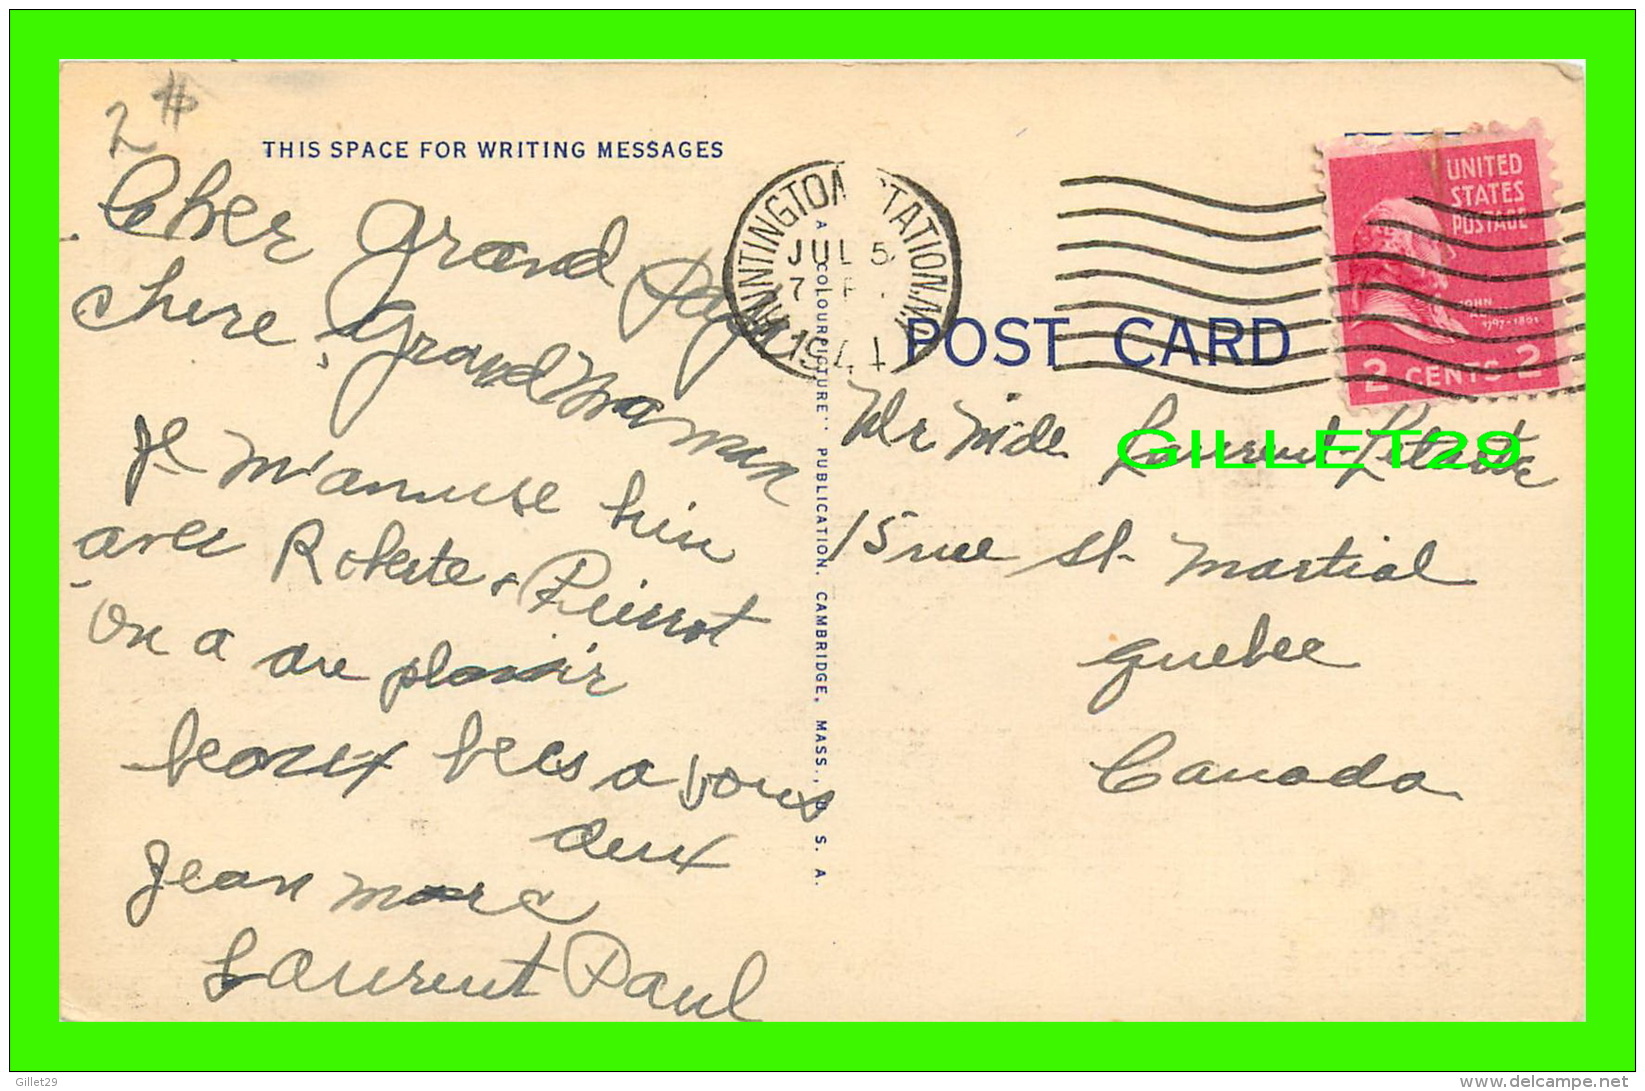 2#
THIS SPACE FOR WRITING MESSAGES
Cher Grand Papa
chere Grand Maman
Je m'amuse bien
avec Roberte & Pierrot
On a du plaisir
beaux becs a vous
deux
Jean Marc
Laurent Paul
HUNTINGTON STATION, N.Y.
JUL 5
7 P
1944
A "COLOURPICTURE" PUBLICATION, CAMBRIDGE, MASS., U. S. A.
POST CARD
UNITED
STATES
POSTAGE
JOHN
1797-1801
2 CENTS 2
Mr Mde Laurent
GILLET29
15 rue St. Martial
Quebec
Canada
Gillet29
www.delcampe.net